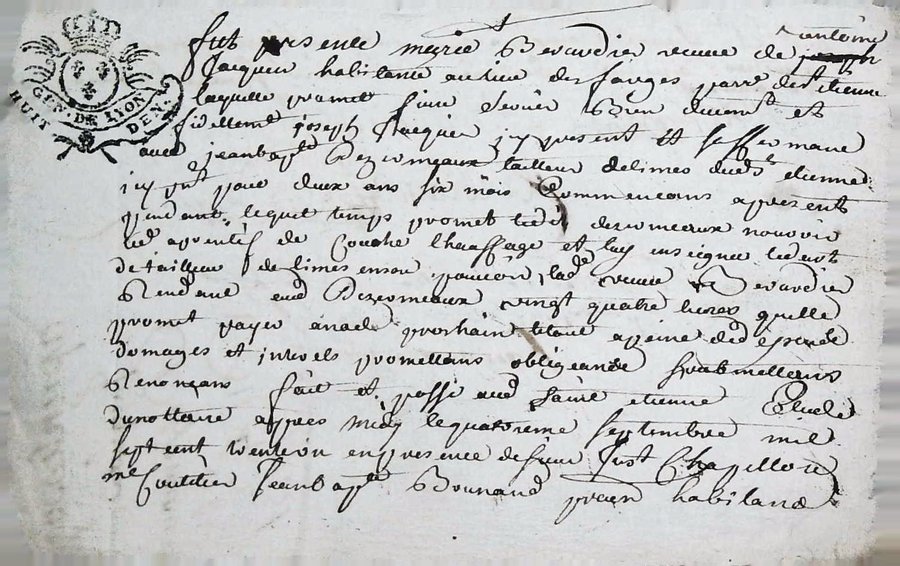 GEN. DE LYON
HUIT DEN.
antoine
fut presente marie Berardier veuve de joseph
Jacquier habitante au lieu des farges parr. de st etienne
laquelle promet faire servir bien duemt et
fidellemt joseph Jacquier icy present et
avec jeanbapt Dezcomeaux tailleur de limes dud st etienne
icy pnt pour deux ans six mois Commencans apresent
pendant lequel temps promet led descomeaux nourrir
led aprentif de Couche Chauffage et luy enseigner led art
de tailleur de limes en son pouvoir, lad veuve Berardier
Rendant aud Dezcomeaux vingt quatre livres quelle
promet payer a noel prochain le tout a peine de
Domages et interets promettans obligeans soubmettans
Renonçans fait et passé aud saint etienne Etude
du nottaire apres midy le quatorzieme septembre mil
sept cent trente un en presence de sieur Just Chapellon
me Coutelier Jeanbapte Bonnand habitans